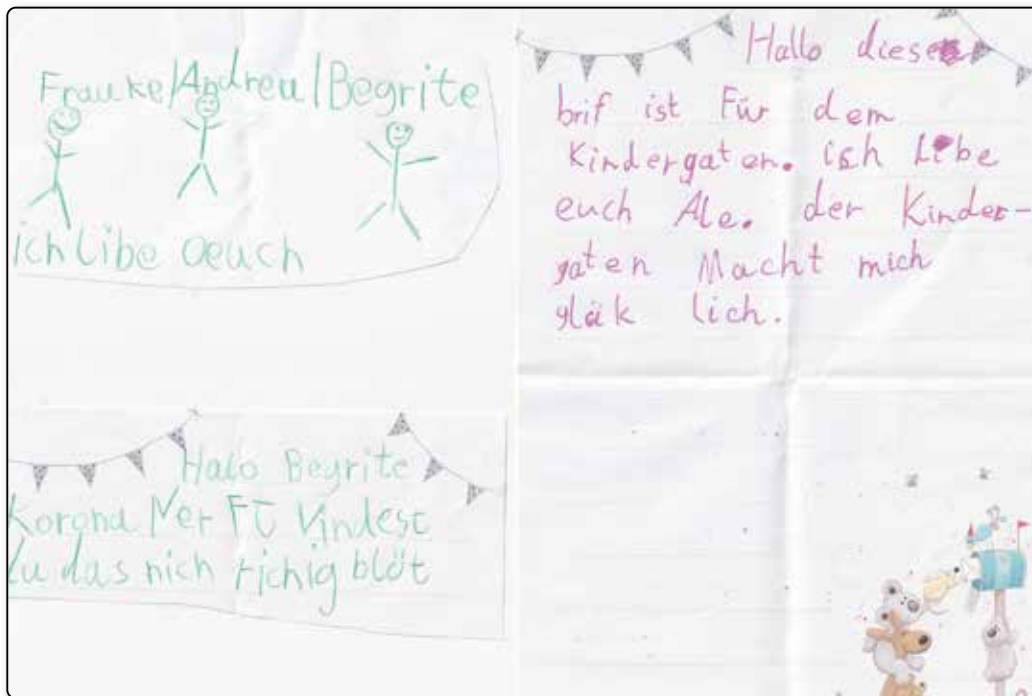 Frauke/Andrea/Begrite
ich Libe oeuch
Halo Begrite
Korona Nervt Vindest
du das nich richig blöt
Hallo diese
brif ist Für dem
Kindergaten. ich Libe
euch Ale. der Kinder-
gaten Macht mich
glük lich.